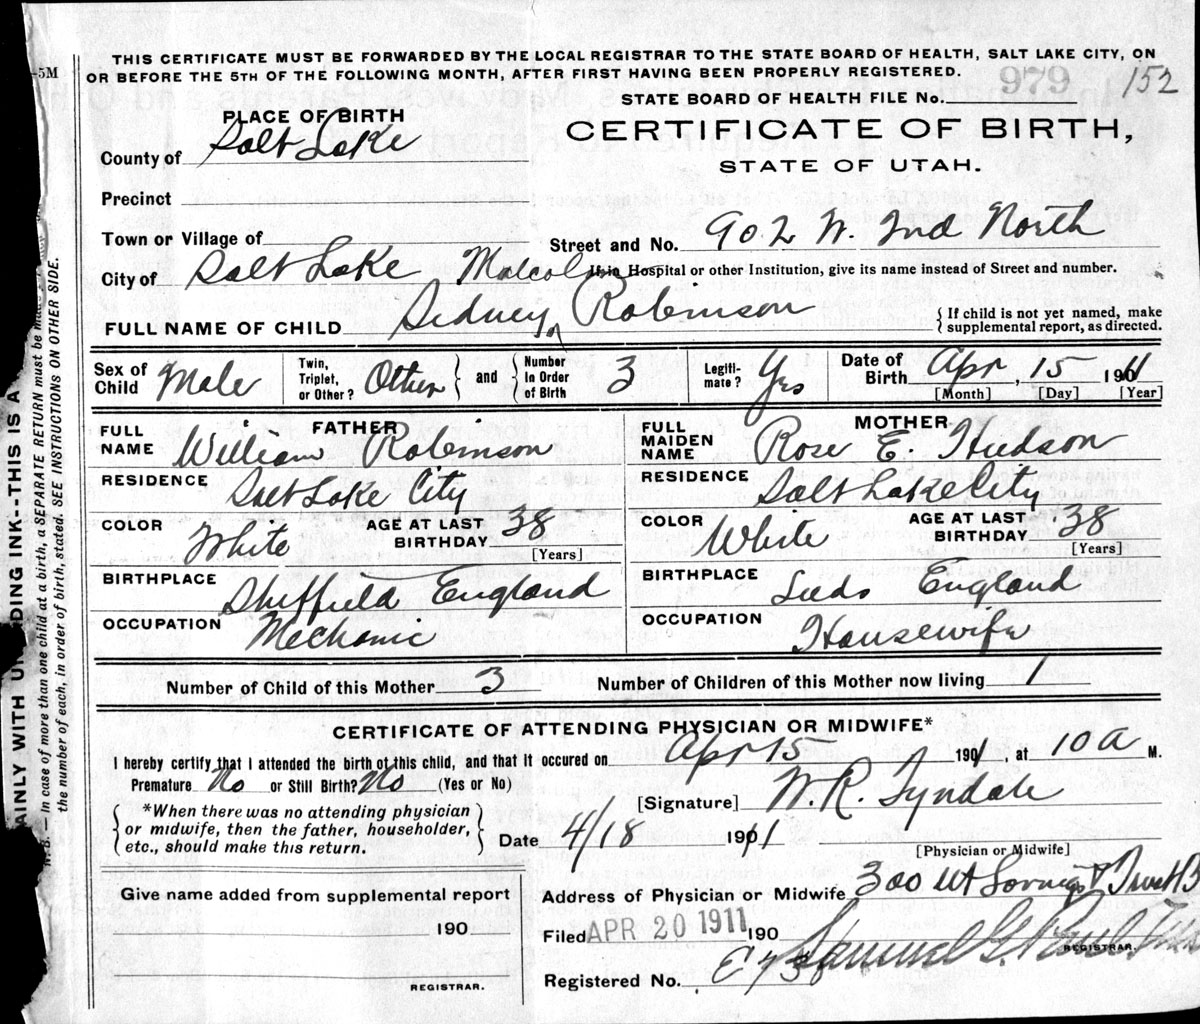 THIS CERTIFICATE MUST BE FORWARDED BY THE LOCAL REGISTRAR TO THE STATE BOARD OF HEALTH, SALT LAKE CITY, ON
OR BEFORE THE 5TH OF THE FOLLOWING MONTH, AFTER FIRST HAVING BEEN PROPERLY REGISTERED.
-5M
STATE BOARD OF HEALTH FILE No. 979 152
PLACE OF BIRTH
CERTIFICATE OF BIRTH,
STATE OF UTAH.
County of Salt Lake
Precinct
Town or Village of
Street and No. 902 W. 2nd North
City of Salt Lake
If in Hospital or other Institution, give its name instead of Street and number.
Malcolm
FULL NAME OF CHILD Sidney ^ Robinson
{ If child is not yet named, make
supplemental report, as directed.
Sex of Child Male
Twin, Triplet, or Other? Other } and { Number in Order of Birth 3
Legitimate? Yes
Date of Birth Apr, 15 1911
[Month] [Day] [Year]
FATHER
FULL NAME William Robinson
RESIDENCE Salt Lake City
COLOR White AGE AT LAST BIRTHDAY 38 [Years]
BIRTHPLACE Sheffield England
OCCUPATION Mechanic
MOTHER
FULL MAIDEN NAME Rose E. Hudson
RESIDENCE Salt Lake City
COLOR White AGE AT LAST BIRTHDAY 38 [Years]
BIRTHPLACE Leeds England
OCCUPATION Housewife
Number of Child of this Mother 3 Number of Children of this Mother now living 1
CERTIFICATE OF ATTENDING PHYSICIAN OR MIDWIFE*
I hereby certify that I attended the birth of this child, and that it occured on Apr 15 1901, at 10 a M.
Premature No or Still Birth? No (Yes or No)
[Signature] W. R. Tyndale
{ *When there was no attending physician
or midwife, then the father, householder,
etc., should make this return. }
Date 4/18 1911
[Physician or Midwife]
Give name added from supplemental report
190
REGISTRAR.
Address of Physician or Midwife 300 Ut Savings & Trust B
Filed APR 20 1911 190
Samuel G. Paul
REGISTRAR.
Registered No. E 738
AINLY WITH UNFADING INK--THIS IS A
N. B. — In case of more than one child at a birth, a SEPARATE RETURN must be made
the number of each, in order of birth, stated. SEE INSTRUCTIONS ON OTHER SIDE.